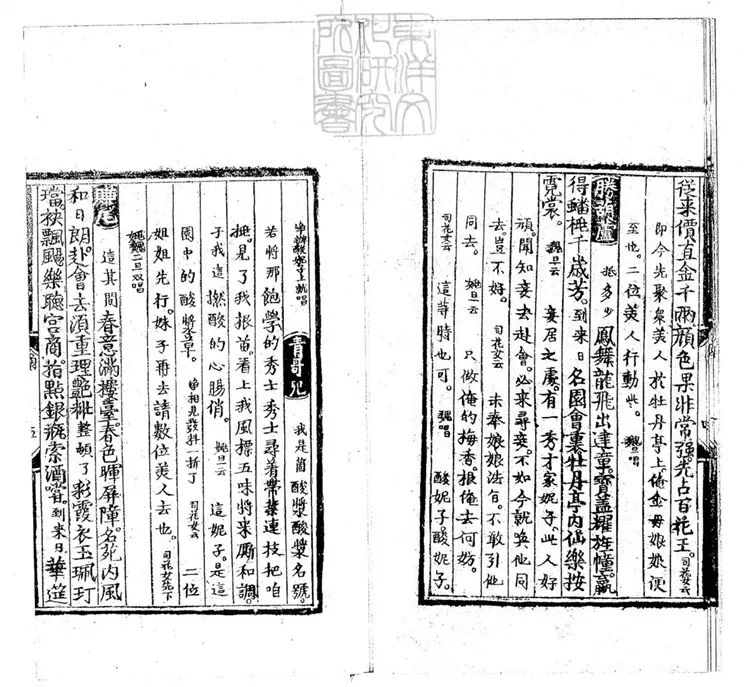 東洋文
化研究
院圖書
從来價直金千兩顔色果非常强先占百花王。司花女云
即今先聚衆美人於牡丹亭上。俺金母娘娘便
至也。二位美人行動些。魏旦云
勝葫蘆 抵多少鳳舞龍飛出建章寳盖耀旌幢贏
得蟠桃千歲芳。到来日名園會裏牡丹亭内仙樂按
霓裳。魏旦云 妾居之處。有一秀才家妮子。此人好
頑。聞知妾去赴會。必来尋妾。不如今就喚他同
去。豈不好。司花女云 未奉娘娘法旨。不敢引他
同去。魏旦云 只做俺的梅香。跟俺去何妨。
司花女云 這等時也可。魏唱 酸妮子。酸妮子。
青哥兒 我是箇酸漿酸漿名號。
若將那飽學的秀士秀士尋着常葉連枝把咱
挑。見了我根苗。看上我風標五味將来厮和調。
子我這撚酸的心腸俏。姚旦云 這妮子。是這
園中的酸漿草。 司花女云 二位
姐姐先行。妹子再去請數位美人去也。司花女先下
姚魏二旦双唱
賺尾 這其間春意滿樓臺。春色暉屏障。名苑内風
和日朗。赴會去湏重理艷粧整頓了彩霞衣玉珮玎
璫袂飄颺樂聽宫商。指點銀瓶索酒嘗。到来日華筵
五